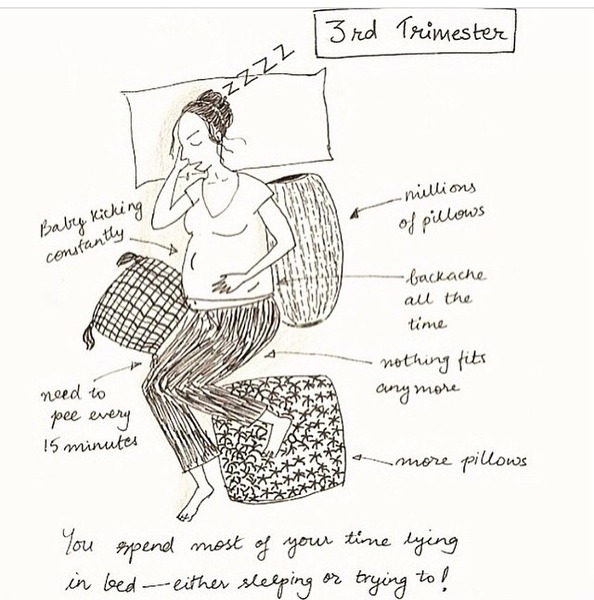 3rd Trimester
ZZZZ
millions
of pillows
Baby kicking
constantly
backache
all the
time
nothing fits
anymore
need to
pee every
15 minutes
more pillows
You spend most of your time lying
in bed — either sleeping or trying to!